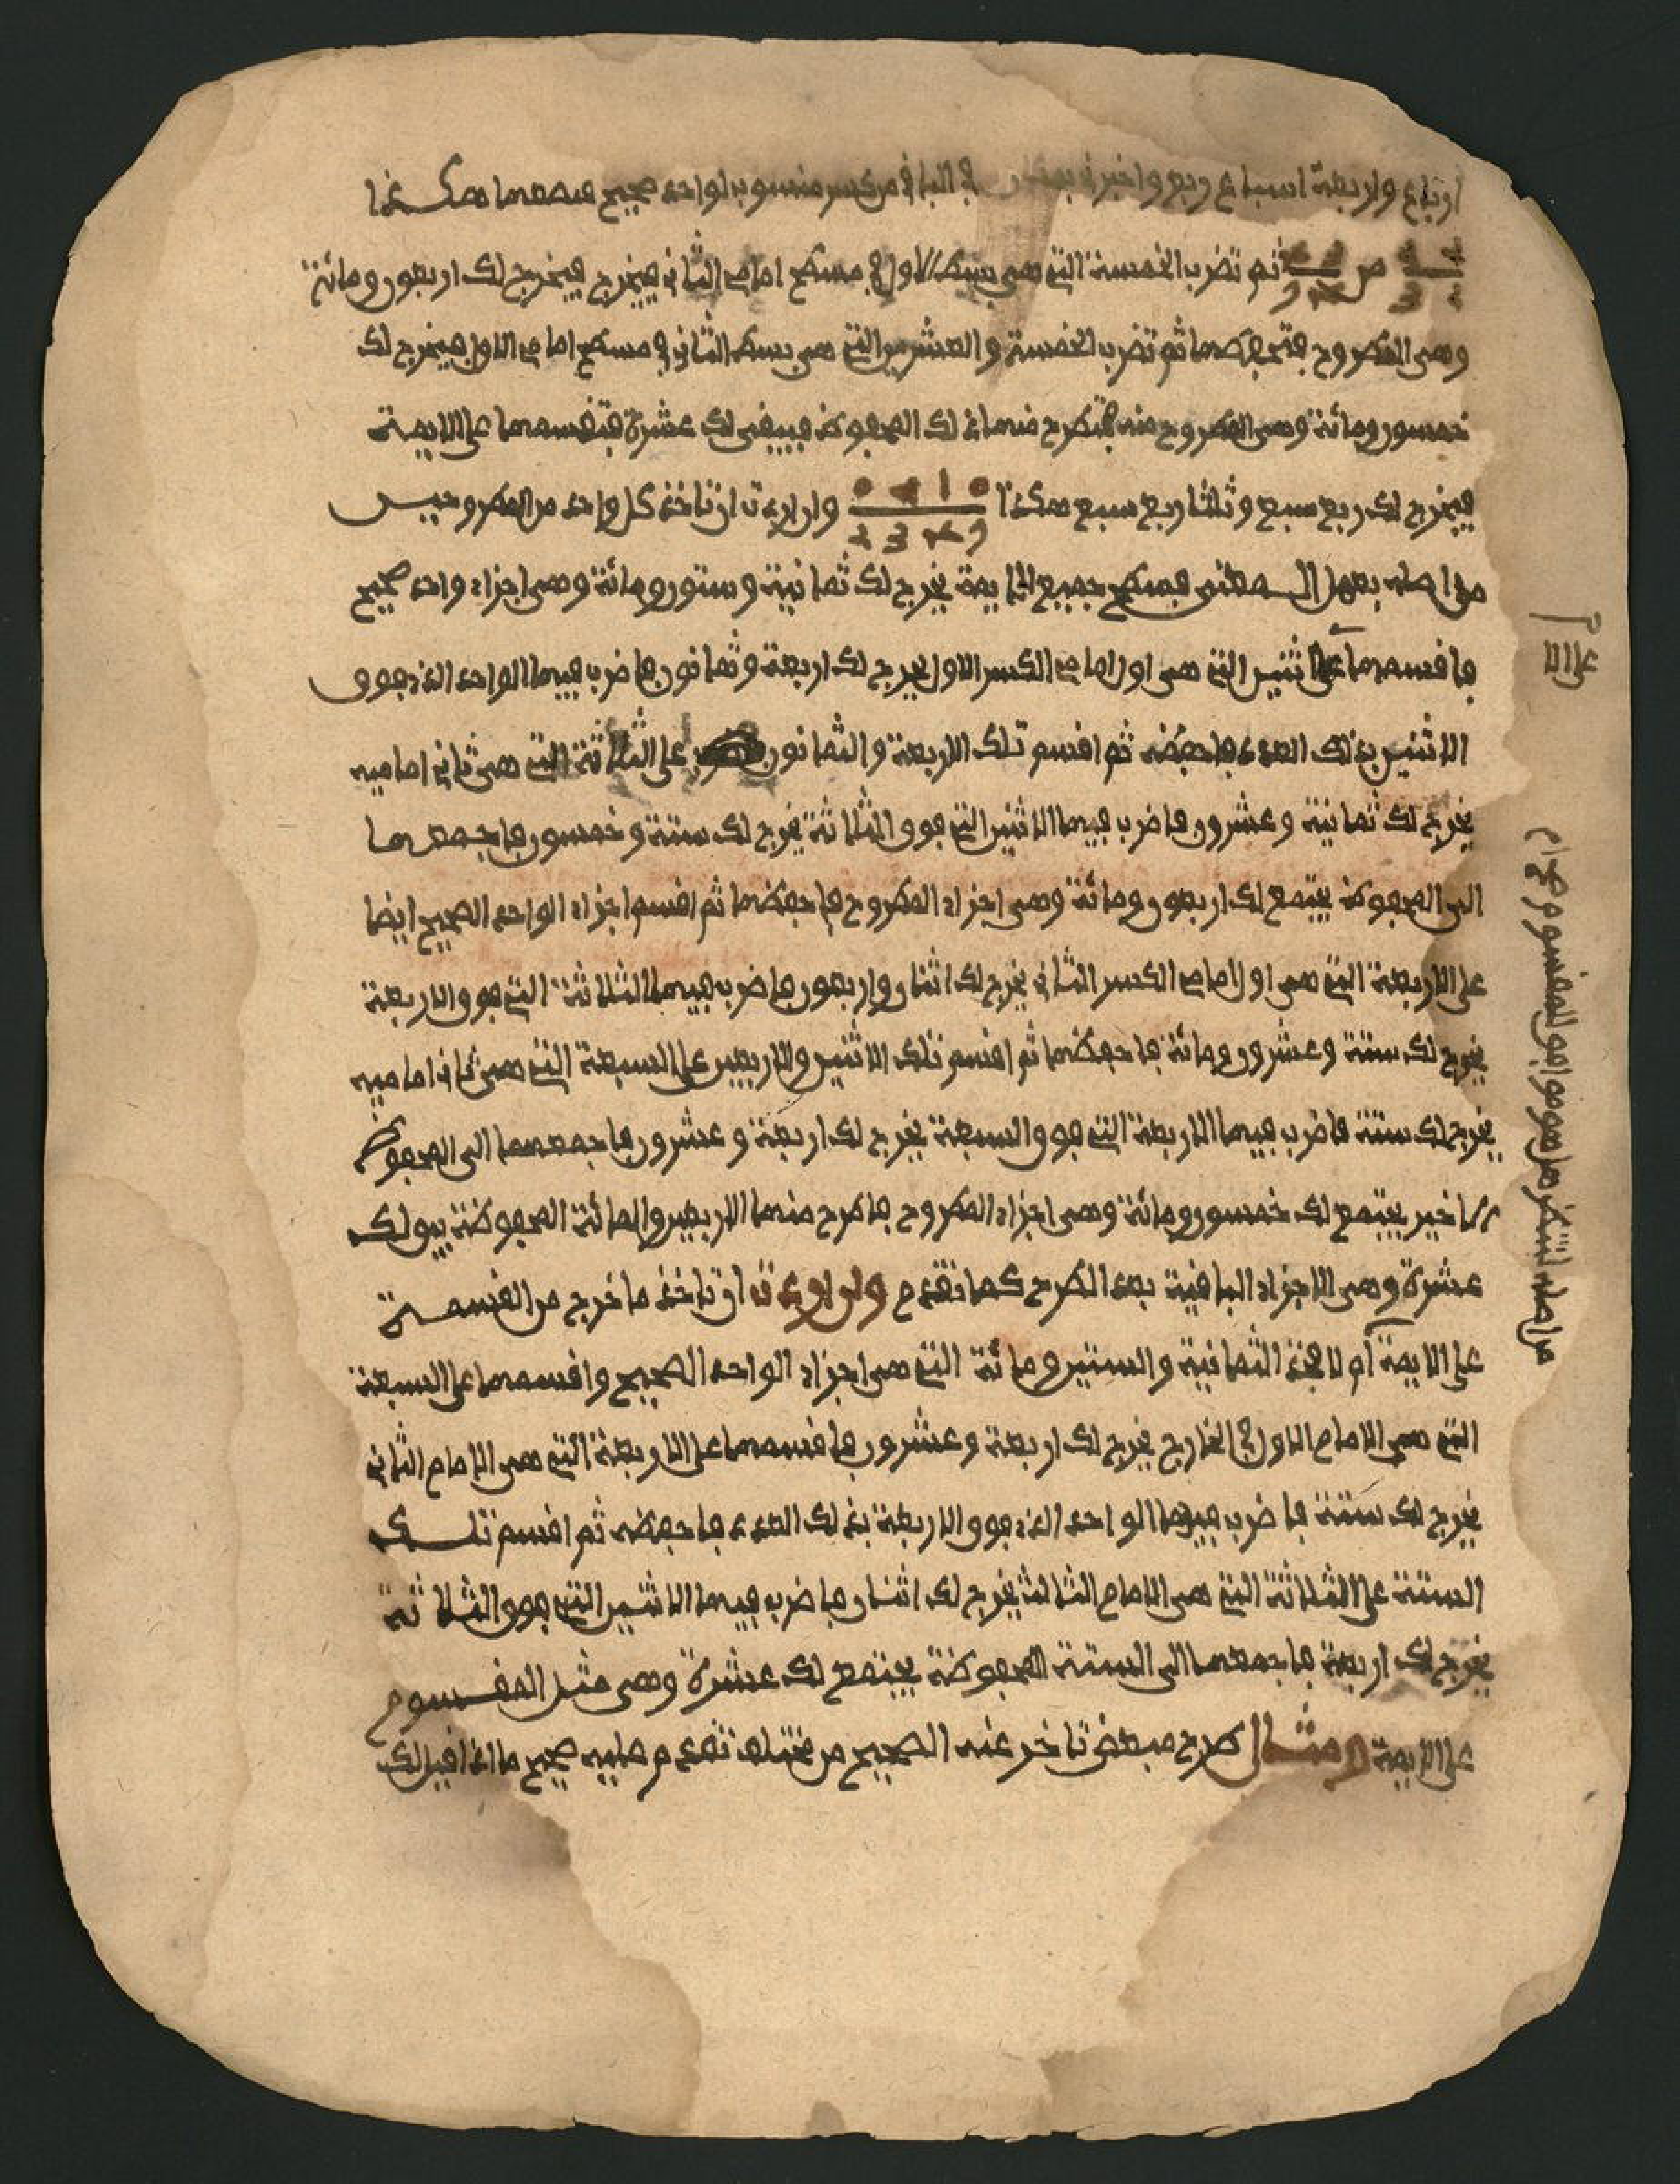 ارباع واربعة اسباع ربع واخبرني بمقدار في الباقي من كسر منسوب لواحد صحيح فضعهما هكذا
من ثم تضرب الخمسة التي هي بسط الاول في مسطح امامي الثاني فيخرج فيخرج لك اربعون ومائة
وهي المطروح فتحفظهما ثم تضرب الخمسة والعشرين التي هي بسط الثاني في مسطح امامي الاول فيخرج لك
خمسون ومائة وهي المطروح منه فتطرح منها ذلك المحفوظ فيبقى لك عشرة فتقسمها على الايمة
فيخرج لك ربع سبع وثلثا ربع سبع هكذا ٠ ١ ٢ ٠ وان اردت ان تاخذ كل واحد من المطروحيس
من اصله بعمل فسطح جميع الايمة يخرج لك ثمانية وستون ومائة وهي اجزاء واحد صحيح
فاقسمها على اثنين التي هي اول امامي الكسر الاول يخرج لك اربعة وثمانون فاضرب فيها الواحد الذي فوق
الاثنين بذلك العدد فاحفظه ثم اقسم تلك الاربعة والثمانون على الثلاثة التي هي ثاني اماميه
يخرج لك ثمانية وعشرون فاضرب فيها الاثنين التي فوق الثلاثة يخرج لك ستة وخمسون فاجمعهما
الى المحفوظ يجتمع لك اربعون ومائة وهي اجزاء المطروح فاحفظها ثم اقسم اجزاء الواحد الصحيح ايضا
على الاربعة التي هي اول امامي الكسر الثاني يخرج لك اثنان واربعون فاضرب فيها الثلاثة التي فوق الاربعة
يخرج لك ستة وعشرون ومائة فاحفظها ثم اقسم تلك الاثنين والاربعين على السبعة التي هي ثاني اماميه
يخرج لك ستة فاضرب فيها الاربعة التي فوق السبعة يخرج لك اربعة وعشرون فاجمعهما الى المحفوظ
الاخير يجتمع لك خمسون ومائة وهي اجزاء المطروح فاطرح منها الاربعين والمائة المحفوظة يبق لك
عشرة وهي الاجزاء الباقية بعد الطرح كما تقدم وان اردت ان تاخذ ما خرج من القسمة
على الايمة او لا فخذ الثمانية والستين ومائة التي هي اجزاء الواحد الصحيح واقسمها على السبعة
التي هي الامام الاول في الخارج يخرج لك اربعة وعشرون فاقسمها على الاربعة التي هي الامام الثاني
يخرج لك ستة فاضرب فيها الواحد الذي فوق الاربعة بذلك العدد فاحفظه ثم اقسم تلك
الستة على الثلاثة التي هي الامام الثالث يخرج لك اثنان فاضرب فيها الاثنين التي فوق الثلاثة
يخرج لك اربعة فاجمعها الى الستة المحفوظة يجتمع لك عشرة وهي مثل المقسوم
على الايمة ومثال طرح مبعض تاخر عنه الصحيح من مختلف تقدم عليه صحيح ما اذا قيل لك
على الا
من اصله لتنظر هل هو موافق للمقسوم ام